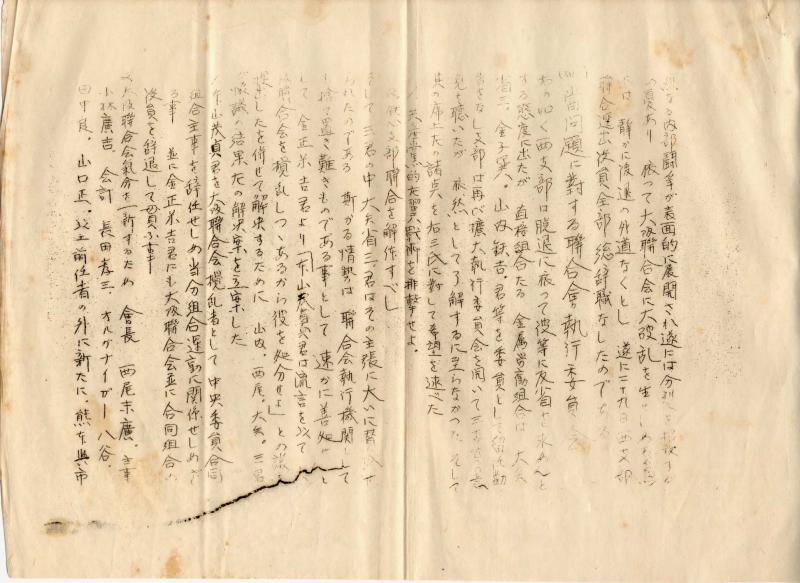 烈なる内部闘争が表面的に展開され遂には分裂を招致する
の虞あり 依って大阪聯合会に大破乱を生ぜしめ
には 静かに後退の外道なくとし 遂に二十九日西支部
聯合選出役員全部総辞職なしたので
問題に対する聯合会の執行委員
あの如く西支部は脱退に依って彼等に反省を求めんと
する態度に出たが 直接組合たる金属労働組合は 大矢
省三、金子 、山内鉄吉君等を委員として留任勧
告をなし支部は再び拡大執行委員会を開いて三君の意
見を聴いたが 依然として了解するに至らなかった そして
其の席上左の諸点を右三氏に対して希望を述べた
支部聯合を解体すべし
そして 三君の中大矢省三君はその主張に大いに
られたのである 斯かる情勢は 聯合会執行機関として
も捨て置き難きものである事として 速かに善処せんと
して 金正米吉君より「下山茂貞君は流言を以て
聯合会を攪乱しつゝあるから彼を処分せよ」との
提出したを併せて解決するために 山内。西尾。大矢。三君
が協議の結果左の解決案を立案した
下山茂貞君を大阪聯合会攪乱者として 中央委員合同
組合主事を辞任せしめ当分組合運動に関係せしめざ
る事 並に金正米吉君にも大阪聯合会並に合同組合の
役員を辞退して貰ふ事
大阪聯合会気分を一新するため 会長 西尾末廣。主事
小林廣吉。会計 長田孝三。オルガナイザー 八谷。
田中良。山口正。以上前任者の外に新たに。熊本與市